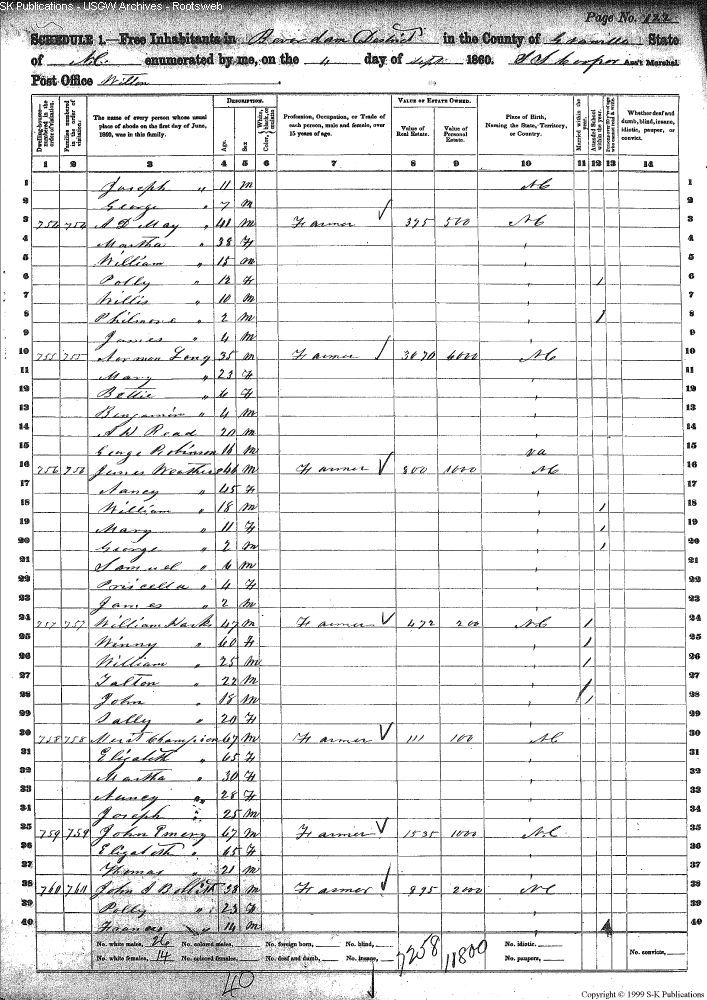 SK Publications - USGW Archives - Rootsweb
Page No. 122
SCHEDULE 1.—Free Inhabitants in Beverdam District in the County of Granville State
of NC enumerated by me, on the 4 day of Sept 1860. Ass't Marshal.
Post Office Wilton
Dwelling-houses— numbered in the order of visitation.
Families numbered in the order of visitation.
The name of every person whose usual place of abode on the first day of June, 1860, was in this family.
DESCRIPTION.
Age. Sex. White, Color, black, or mulatto.
Profession, Occupation, or Trade of each person, male and female, over 15 years of age.
VALUE OF ESTATE OWNED.
Value of Real Estate. Value of Personal Estate.
Place of Birth, Naming the State, Territory, or Country.
Married within the year.
Attended School within the year.
Whether deaf and dumb, blind, insane, idiotic, pauper, or convict.
1 2 3 4 5 6 7 8 9 10 11 12 13 14
1 Joseph " 11 m NC 1
2 George " 7 m 2
3 754 754 A D May " 41 m Farmer 395 500 NC 3
4 Martha " 38 F 4
5 William " 15 m 5
6 Polly " 12 F 6
7 Willis " 10 m 7
8 " 2 m 8
9 James " 4 m 9
10 755 755 Long 35 m Farmer 3070 6000 NC 10
11 Mary " 23 F 11
12 Bettie " 6 F 12
13 Benjamin " 4 m 13
14 Read 20 m 14
15 George Robinson 16 m Va 15
16 756 756 James 46 m Farmer 800 1000 NC 16
17 Nancy " 45 F 17
18 William " 18 m 18
19 Mary " 11 F 19
20 George " 2 m 20
21 Samuel " 6 m 21
22 Priscella " 4 F 22
23 James " 2 m 23
24 757 757 William 47 m Farmer 472 200 NC 24
25 Winny " 60 F 25
26 William " 25 m 26
27 " 22 m 27
28 John " 18 m 28
29 Sally " 20 F 29
30 758 758 Champion 67 m Farmer 111 100 NC 30
31 Elizabeth " 65 F 31
32 Martha " 30 F 32
33 Nancy " 28 F 33
34 Joseph " 25 m 34
35 759 759 John Emery 67 m Farmer 1535 1000 NC 35
36 Elizabeth " 65 F 36
37 Thomas " 21 m 37
38 760 760 John 38 m Farmer 995 2000 NC 38
39 Polly " 23 F 39
40 Frances " 14 m 40
No. white males, 26 No. colored males, No. foreign born, No. blind, 7258 11800 No. idiotic, No. convicts,
No. white females, 14 No. colored females, No. deaf and dumb, No. insane, No. paupers,
40
Copyright © 1999 S-K Publications